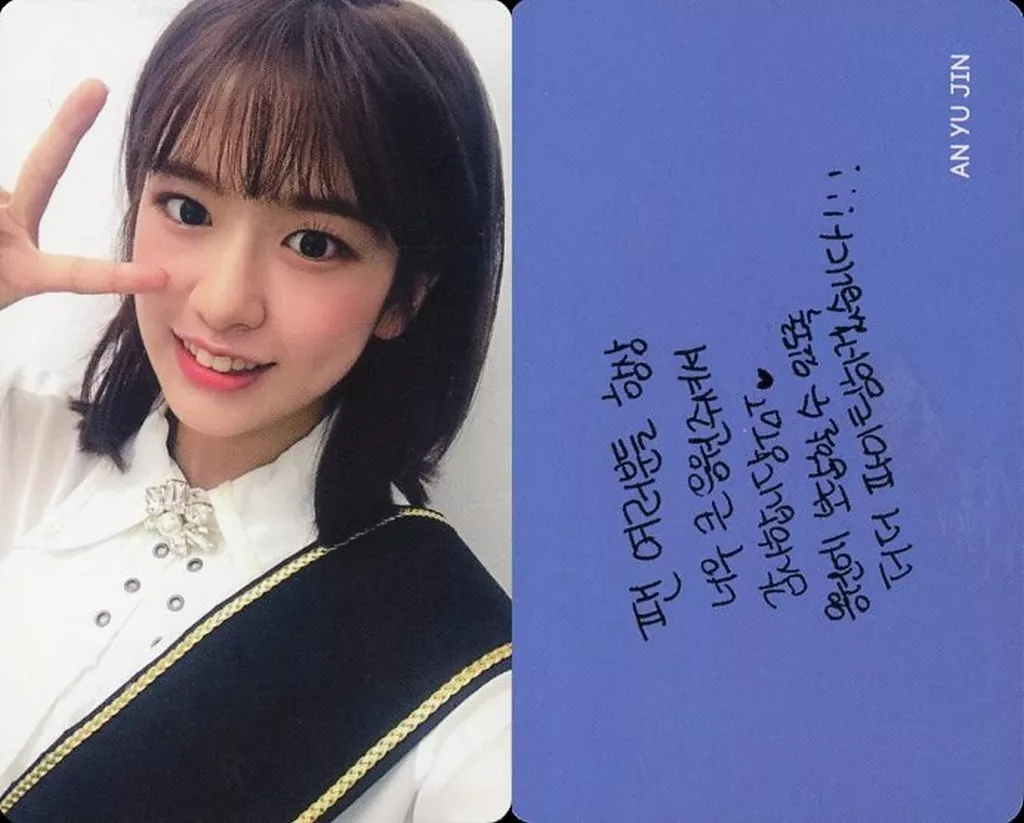 AN YU JIN
팬 여러분들 항상
너무 큰 응원주셔서
감사합니다앙 ♥
응원에 보답할 수 있도록
더더 파이아트아겠습니다!!!